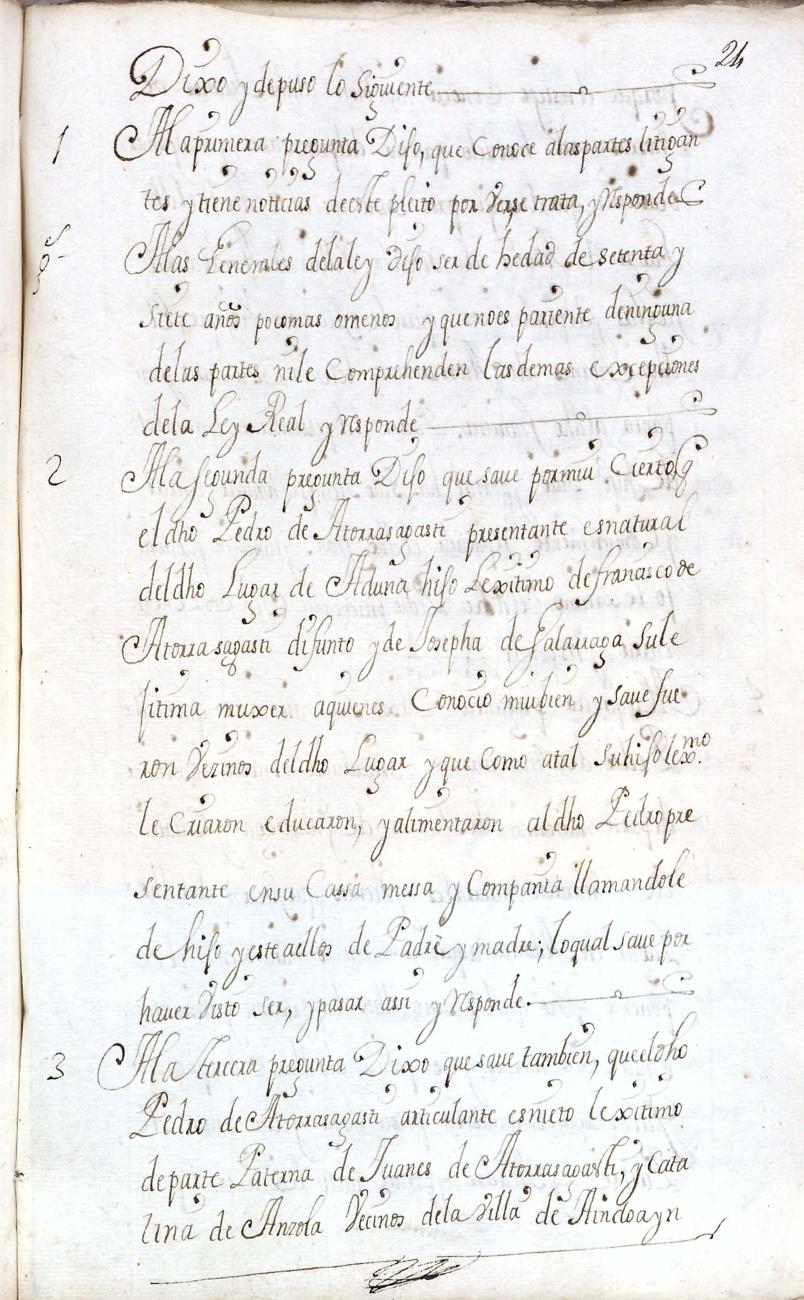 24
Dixo y depuso lo Siguiente
1 A la primera pregunta Diso, que Conoce alas partes litigan
tes y tiene noticias de este pleito por Verse trata, y Responde
A las Generales de la ley diso ser de hedad de setenta y
siete años poco mas o menos y que no es pariente de ninguna
de las partes ni le Comprehenden las demas excepciones
de la Ley Real y Responde
2 A la segunda pregunta Diso que save por mui Cierto q
el dho Pedro de Atorrasagasti presentante es natural
del dho Lugar de Aduna hiso Lexitimo de francisco de
Atorrasagasti difunto y de Josepha de Galarraga su le
sitima muxer aquienes Conocio mui bien y save fue
ron Vezinos del dho Lugar y que Como atal su hiso lexmo.
le Criaron educaron, y alimentaron al dho Pedro pre
sentante en su Cassa messa y Compania llamandole
de hiso y este aellos de Padre y madre; lo qual save por
haver Visto ser, y pasar assi y Responde.
3 A la tercera pregunta Dixo que save tambien, que el dho
Pedro de Atorrasagasti articulante es nieto lexitimo
de parte Paterna de Juanes de Atorrasagasti, y Cata
lina de Anzola Vecinos de la Villa de Aindoayn